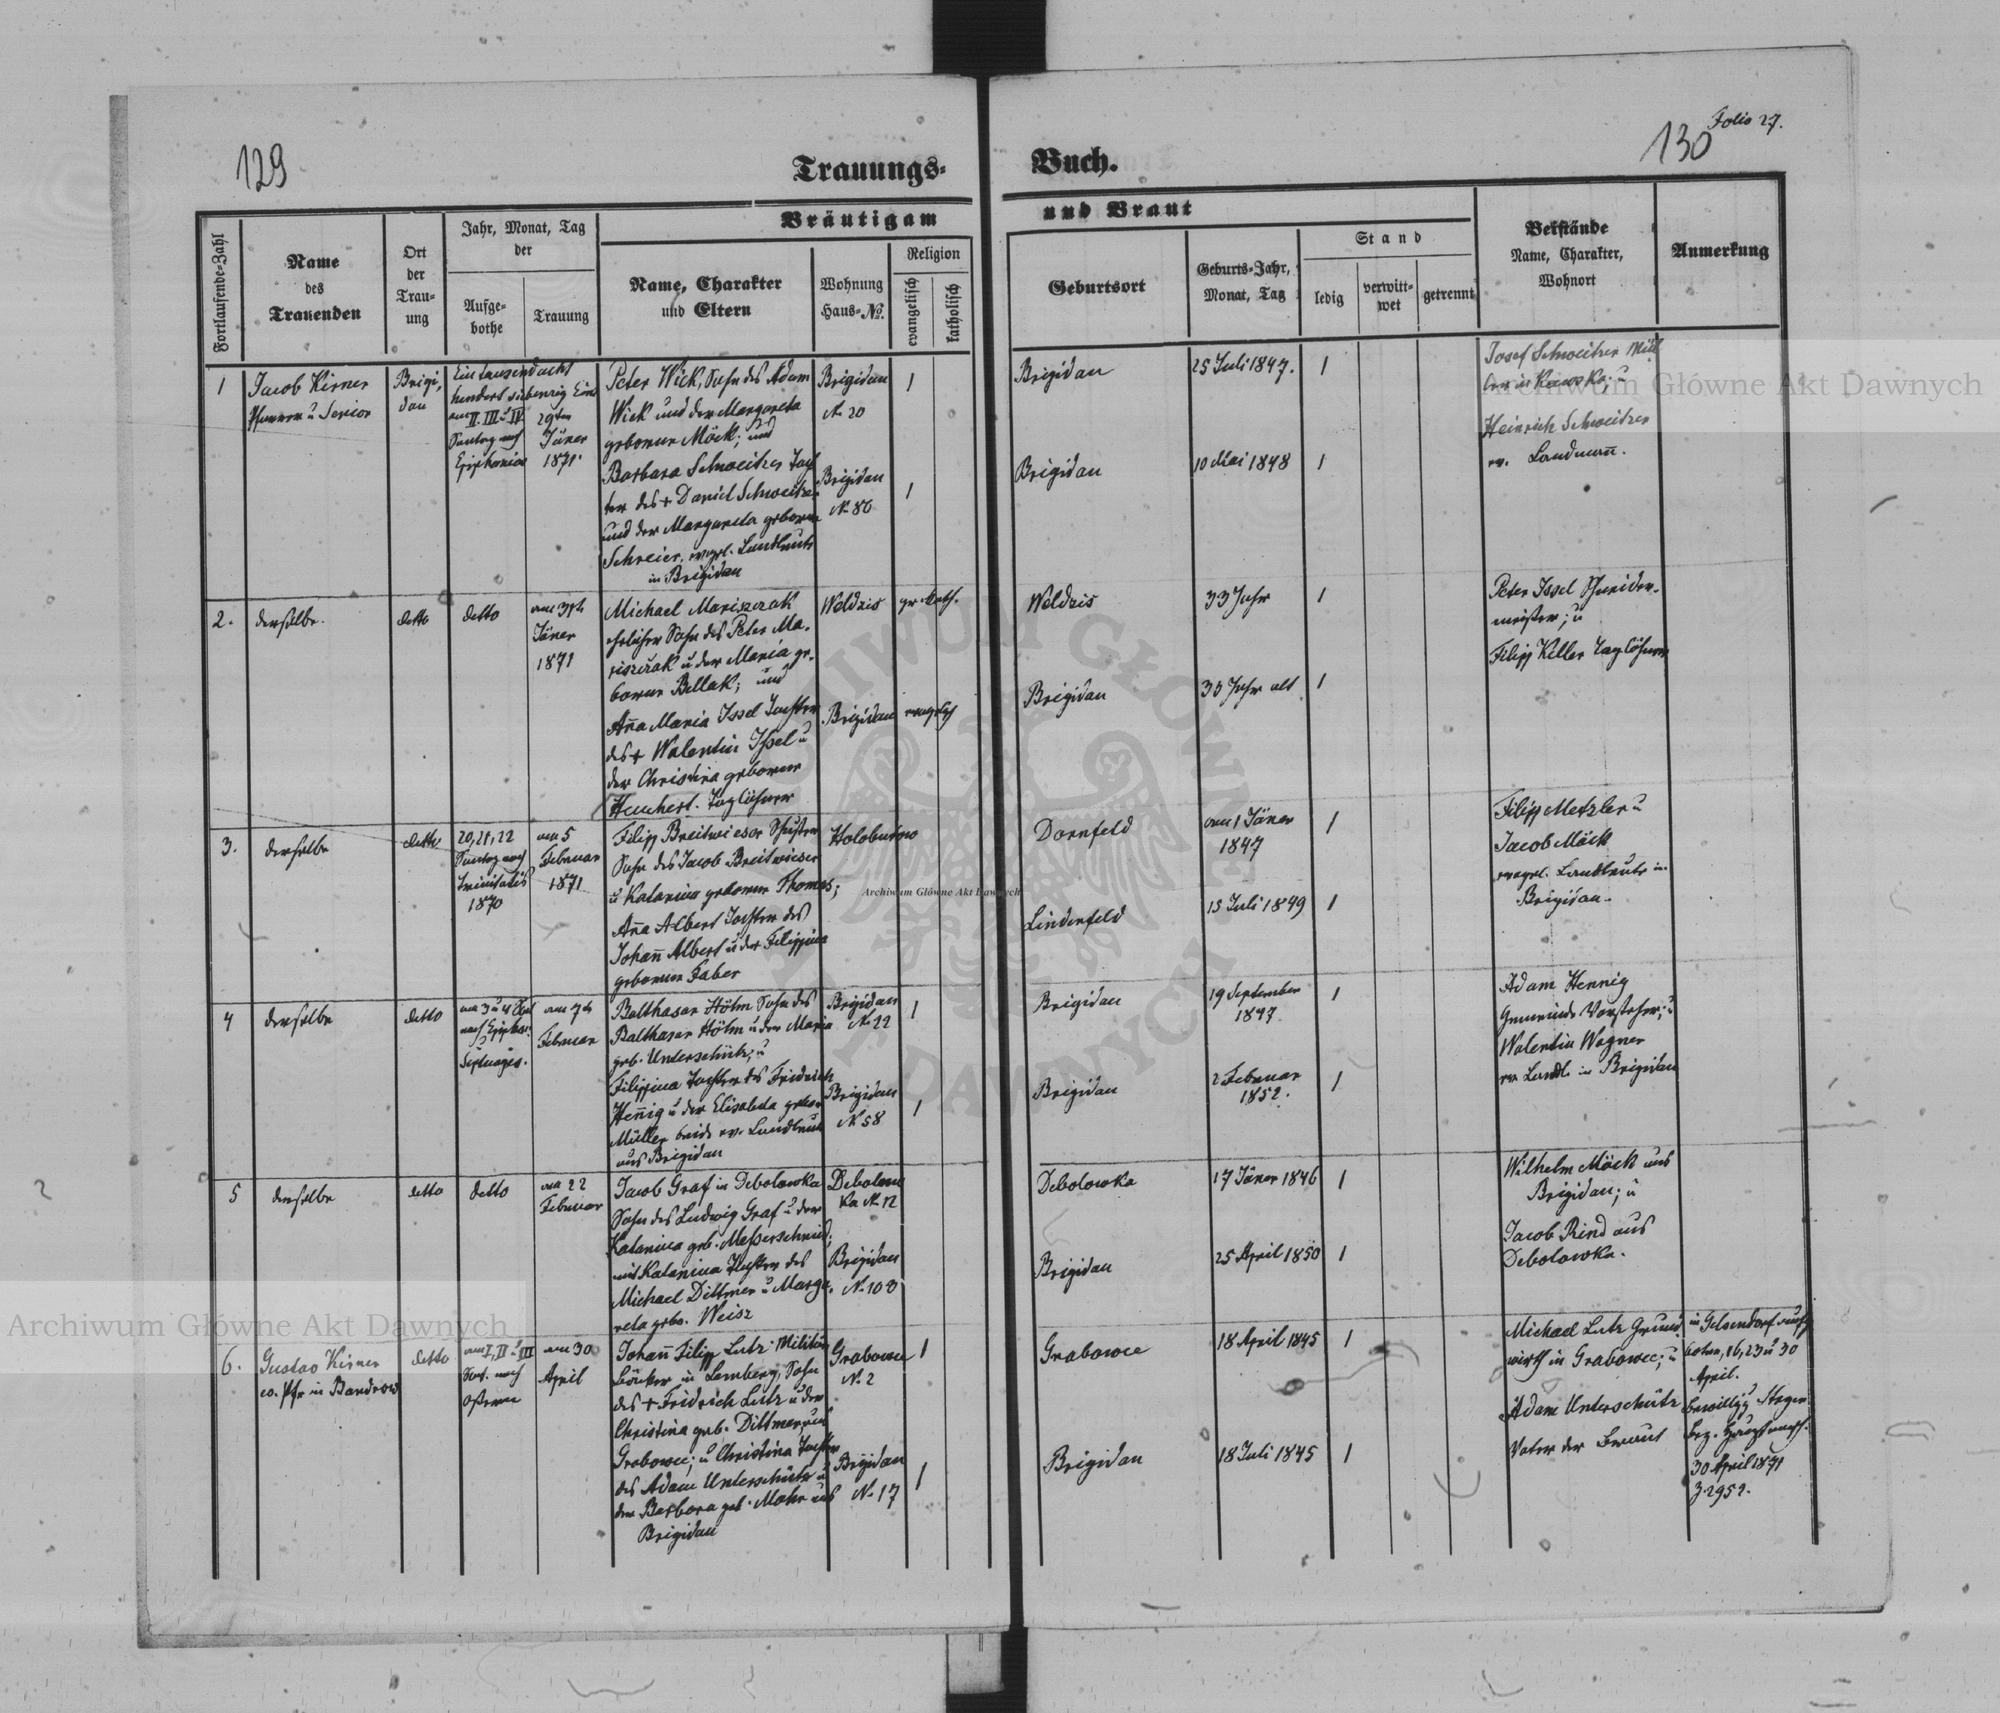 129
130
Folio 27.
Trauungs-
Buch.
Fortlaufende-Zahl
Name
des
Trauenden
Ort
der
Trau-
ung
Jahr, Monat, Tag
der
Aufge-
bothe
Trauung
Bräutigam
Name, Charakter
und Eltern
Wohnung
Haus-No.
Religion
evangelisch
katholisch
und Braut
Geburtsort
Geburts-Jahr,
Monat, Tag
Stand
ledig
verwitt-
wet
getrennt
Beistände
Name, Charakter,
Wohnort
Anmerkung
1
Jacob Kirner
Pfarrer u Senior
Brigi,
dau
Eintausendacht
hundert siebenzig Eins
am II. III u IV
Sontag nach
Epiphanias
29ten
Jäner
1871.
Peter Wick, Sohn des Adam
Wick und der Margareta
geborene Möck; und
Barbara Schweitzer Toch
ter des + Daniel Schweitzer
und der Margareta geborne
Schreier, evgel. Landleute
in Brigidau
Brigidau
N. 20
1
Brigidau
N. 86
1
Brigidau
25 Juli 1847.
1
Brigidau
10 Mai 1848
1
Josef Schweitzer Mül
ler in
Heinrich Schweitzer
ev. Landmann.
2.
derselbe.
detto
detto
Jäner
1871
Michael Mariszczak
ehelicher Sohn des Peter Ma,
riszczak u der Maria ge,
borene Bellak; und
Anna Maria Issel Tochter
des + Walentin Issel u
der Christina geborene
Heuchert. Taglöhner
Weldzis
gr. kath.
Brigidau
evngelsch
Weldzis
33 Jahr
1
Brigidau
30 Jahr alt
1
Peter Issel Schneider-
meister; u
Filipp Keller Taglöhner
3.
derselbe
detto
20, 21, 22
Sontag nach
Trinitatis
1870
am 5
Februar
1871
Filipp Breitwieser Schuster
Sohn des Jacob Breitwieser
u Katarina geborene Thomas;
Anna Albert Tochter des
Johann Albert u der Filippina
geborene Faber
Holobutno
Dornfeld
am 1 Jäner
1847
1
Lindenfeld
15 Juli 1849
1
Filipp Metzler u
Jacob Möck
evgel. Landleute in
Brigidau.
4
derselbe
detto
am 3 u 4 Sont
nach Epiphan:
u
Septuages.
am 7ten
Februar
Balthasar Höhm Sohn des
Balthasar Höhm u der Maria
geb. Unterschütz; u
Filippina Tochter des Fridrich
Hennig u der Elisabeta gebor
Müller beide ev. Landleute
aus Brigidau
Brigidau
N. 22
1
Brigidau
N. 58
1
Brigidau
19 September
1847.
1
Brigidau
2 Februar
1852.
1
Adam Hennig
Gemeinde Vorsteher; u
Walentin Wagner
ev. Landl. in Brigidau
5
derselbe
detto
detto
am 22
Februar
Jacob Graf in Debolowka
Sohn des Ludwig Graf u der
Katarina geb. Messerschmid;
und Katarina Tochter des
Michael Dittmer u Marga,
reta geb. Weisz
Debolow
ka N. 12
Brigidau
N. 103
Debolowka
17 Jäner 1846
1
Brigidau
25 April 1850
1
Wilhelm Möck aus
Brigidau; u
Jacob Rind aus
Debolowka.
6.
Gustav Kirner
ev. Pfr in Bandrow
detto
am I, II u III
Sont. nach
Ostern
am 30
April
Johann Filipp Lutz Militär
bäcker in Lemberg, Sohn
des + Fridrich Lutz u der
Christina geb. Dittmer aus
Grabowce; u Christina Tochter
des Adam Unterschütz u
der Barbara geb. Mohr aus
Brigidau
Grabowce
N. 2
1
Brigidau
N. 17
1
Grabowce
18 April 1845
1
Brigidau
18 Juli 1845
1
Michael Lutz Grund
wirth in Grabowce; u
Adam Unterschütz
Vater der Braut
in Gelsendorf aufge
boten, 16, 23 u 30
April.
30 April 1871
Z. 2952.
Archiwum Główne Akt Dawnych
Archiwum Główne Akt Dawnych
Archiwum Główne Akt Dawnych
ARCHIWUM GŁÓWNE
AKT DAWNYCH